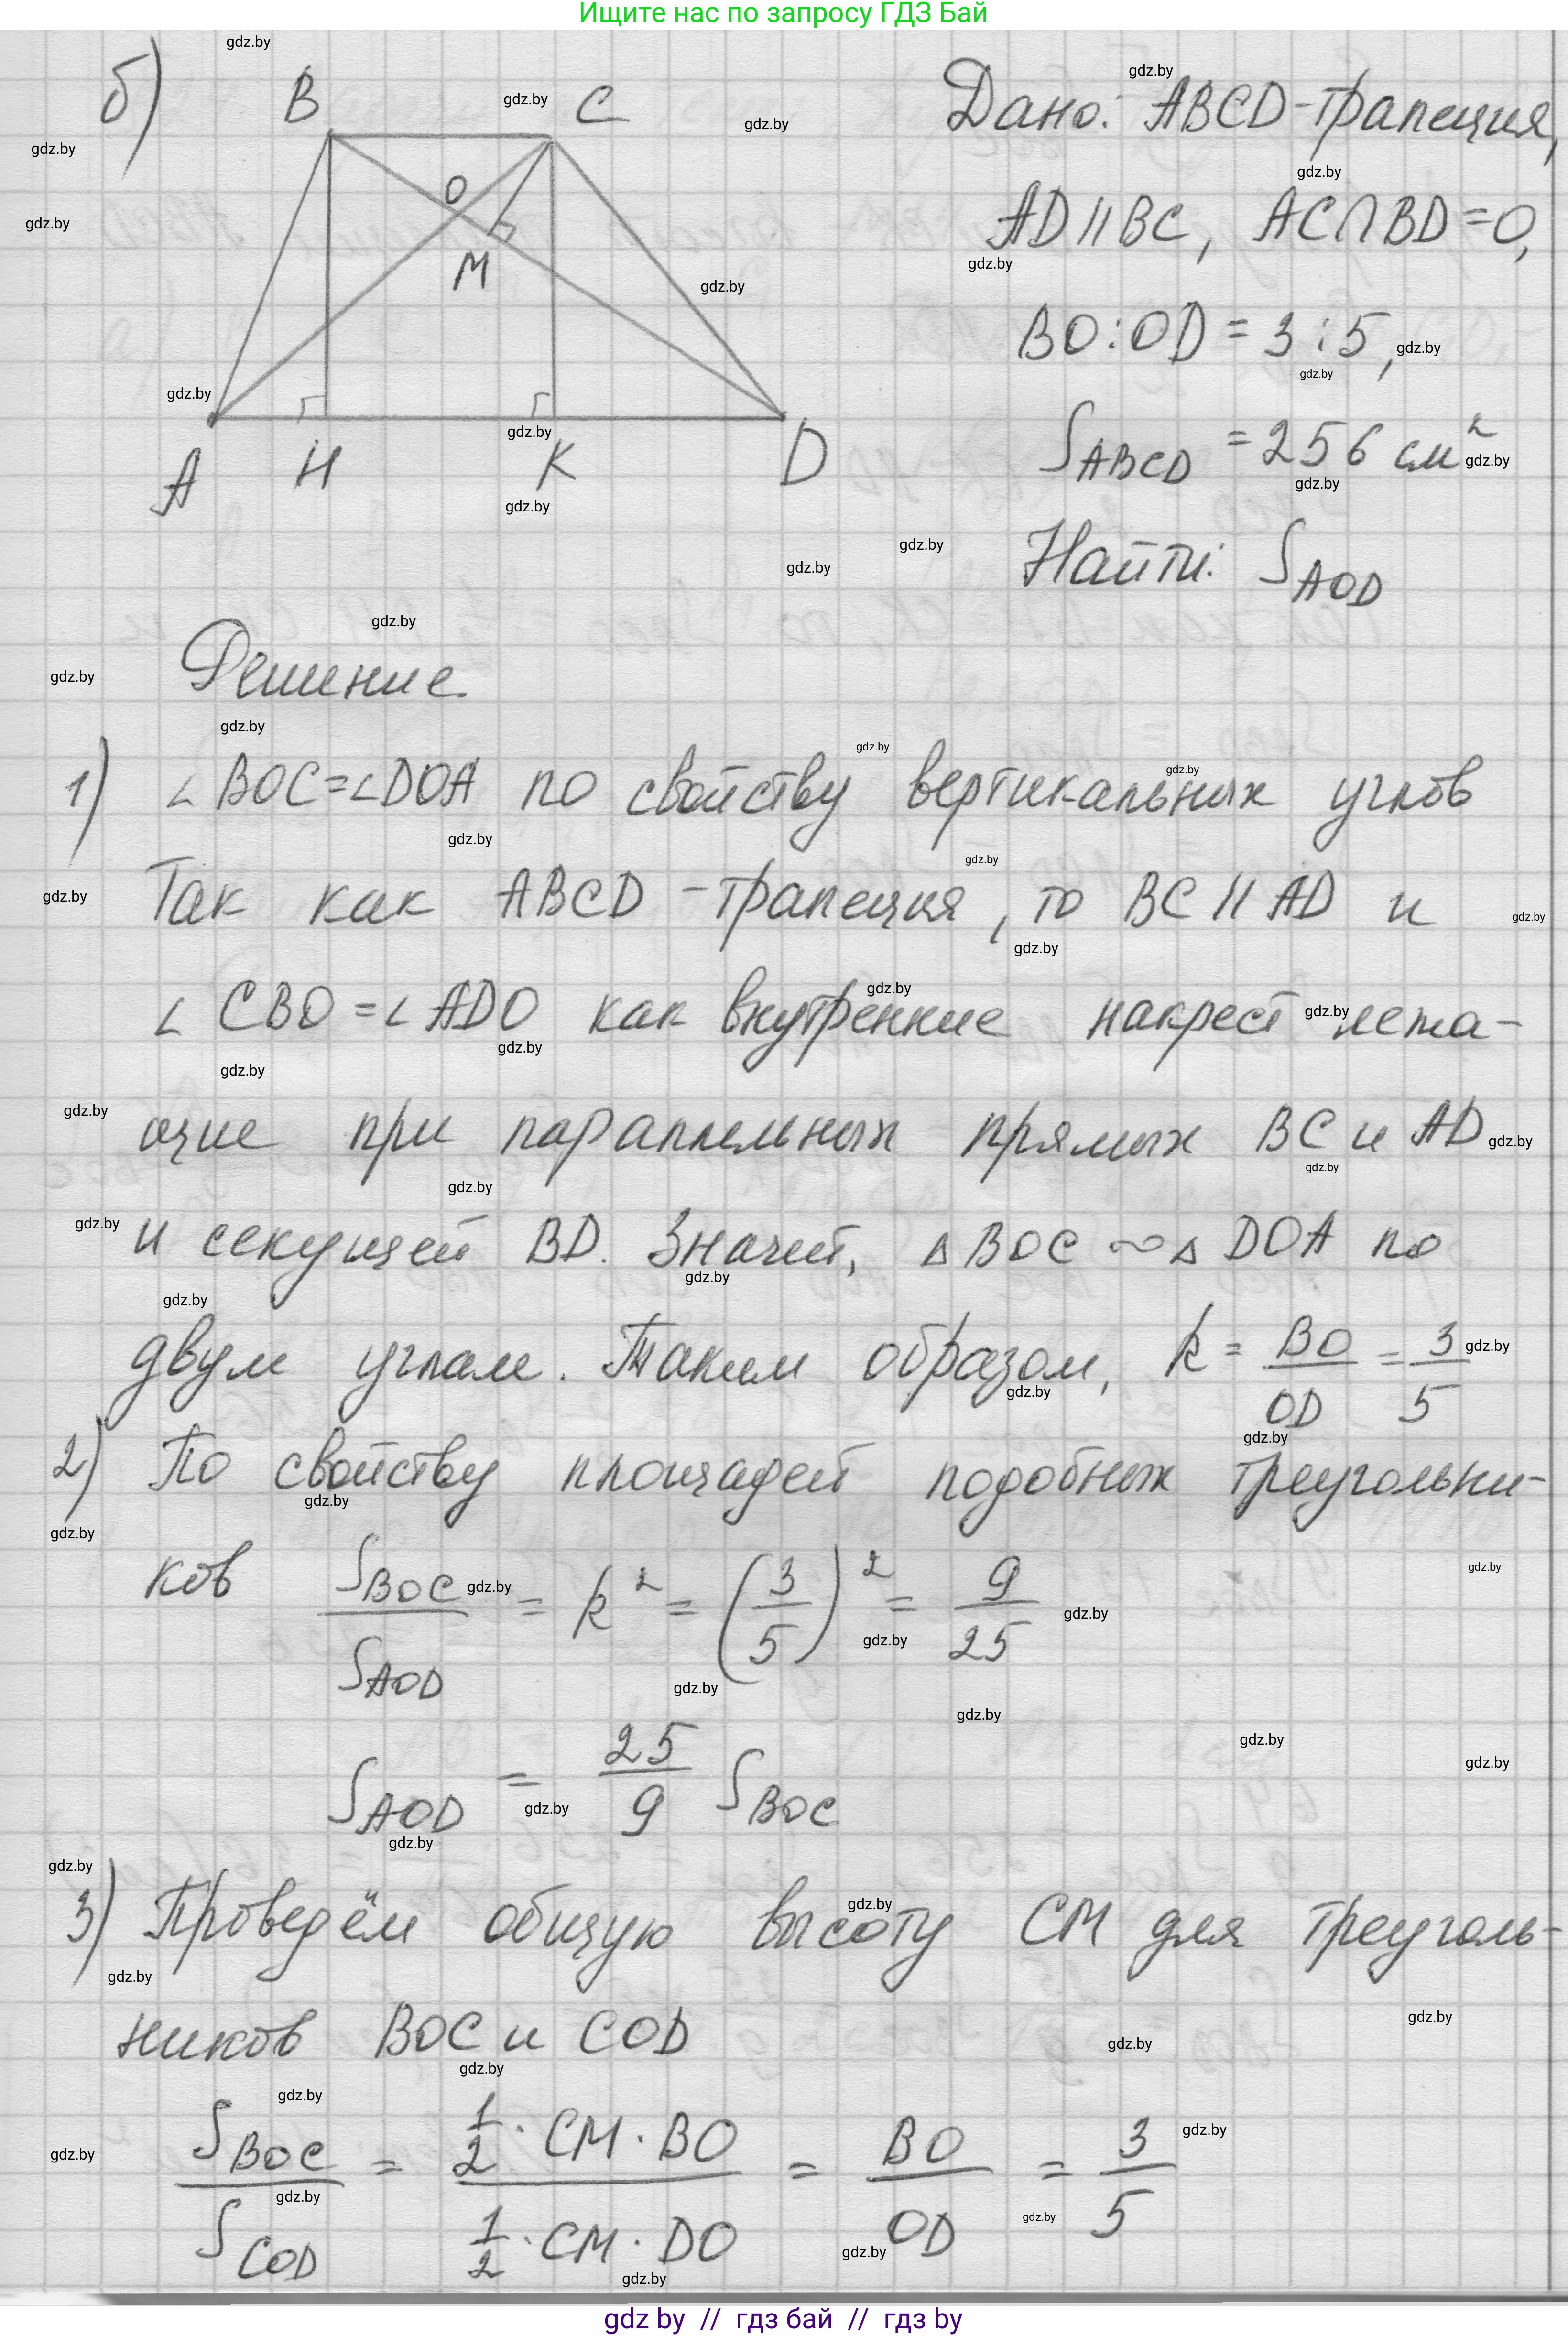 Ищите нас по запросу ГДЗ Бай
б) B C Дано: ABCD-трапеция,
O M AD||BC, AC∩BD=O,
BO:OD=3:5,
A H K D S_ABCD = 256 см²
Найти: S_AOD
Решение.
1) ∠BOC=∠DOA по свойству вертикальных углов
Так как ABCD -трапеция, то BC || AD и
∠CBO=∠ADO как внутренние накрест лежа-
щие при параллельных прямых BC и AD
и секущей BD. Значит, △BOC ∾ △DOA по
двум углам. Таким образом, k = BO/OD = 3/5
2) По свойству площадей подобных треугольни-
ков S_BOC/S_AOD = k² = (3/5)² = 9/25
S_AOD = 25/9 S_BOC
3) Проведём общую высоту CM для треуголь-
ников BOC и COD
S_BOC/S_COD = (1/2 · CM · BO)/(1/2 · CM · DO) = BO/OD = 3/5
gdz by // гдз бай // гдз by